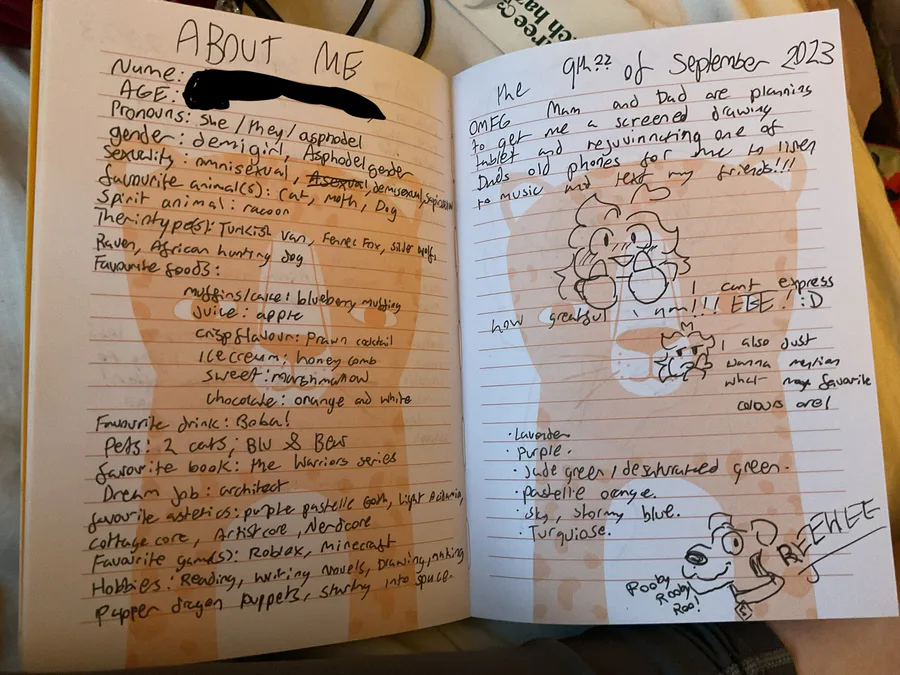 ABOUT ME
Name:
AGE:
Pronouns: she/they/asphodel
gender: demigirl, Asphodelgender
sexuality: omnisexual, Asexual, demisexual,
favourite animal(s): Cat, moth, Dog
Spirit animal: racoon
Turkish Van, Fennec Fox, silver
Raven, African hunting dog
Favourite foods:
muffins/cake: blueberry muffins
juice: apple
crisp flavour: Prawn cocktail
ice cream: honey comb
sweet: marshmallow
chocolate: orange and white
Favourite drink: Boba!
Pets: 2 cats; Blu & Bear
favourite book: the Warriors series
Dream job: architect
favourite astetics: purple pastelle Goth, Light Acidamia,
cottage core, Artistcore, Nerdcore
Favourite game(s): Roblox, Minecraft
Hobbies: Reading, writing novels, Drawing, making
papper dragon puppets, staring into space.
the 9th?? of September 2023
OMFG Mam and Dad are planning
to get me a screened drawing
tablet and rejuvinnating one of
Dads old phones for me to lisen
to music and text my friends!!!
I cant express
how greatful i am!!! EEE! :D
I also just
wanna mention
what my favorite
colours are!
· Lavender
· purple.
· Jade green / desaturated green.
· pastelle orange.
· sky, stormy blue.
· Turquiose.
REEHEE
Rooby
Rooby
Roo!